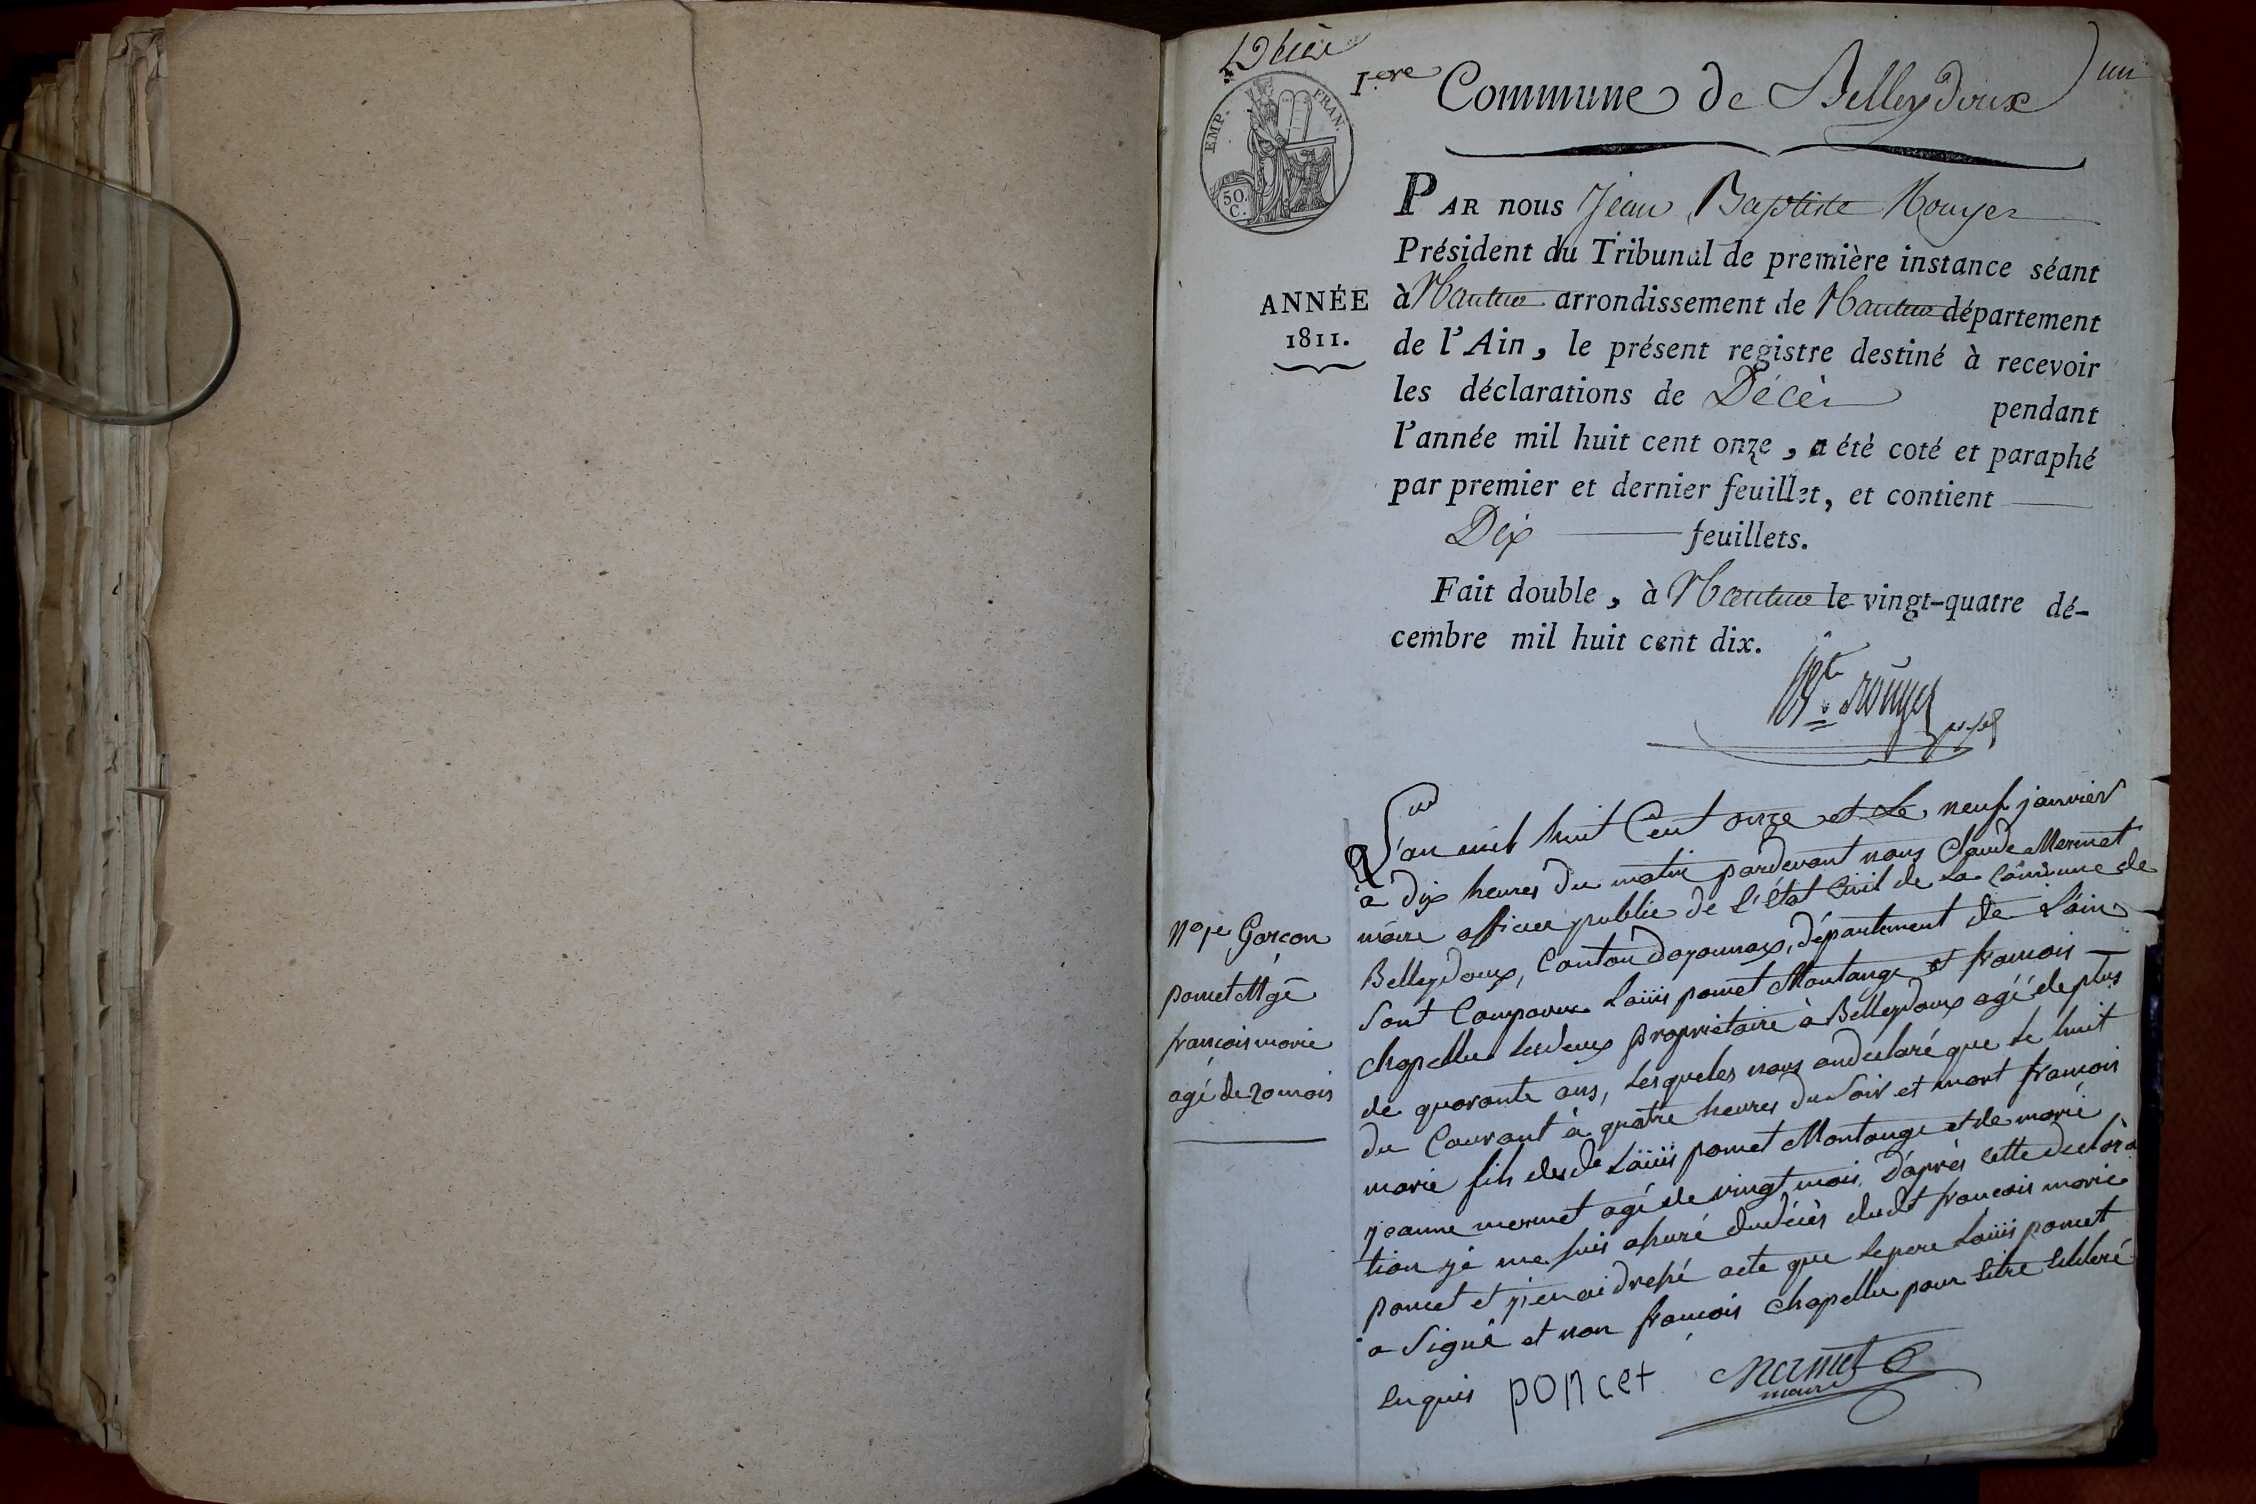 Décès
1.ere
un
Commune de Belleydoux
EMP. FRAN.
50. C.
PAR nous Jean Baptiste Rouyer
Président du Tribunal de première instance séant
ANNÉE
1811.
à Nantua arrondissement de Nantua département
de l'Ain, le présent registre destiné à recevoir
les déclarations de Décès pendant
l'année mil huit cent onze, a été coté et paraphé
par premier et dernier feuillet, et contient
Dix feuillets.
Fait double, à Nantua le vingt-quatre dé-
cembre mil huit cent dix.
Bte rouyer
L'an mil huit Cent onze et Le neuf janvier
a dix heures du matin pardevant nous Claude Mermet
maire officier public de l'état Civil de La Commune de
Belleydoux, Canton doyonnax, département de L'ain
Sont Comparus Louis poncet Montange et francois
chapellu lesdeux propriétaire à Belleydoux agé de plus
de quarante ans, Lesqueles nous ondeclaré que le huit
du Courant à quatre heures du Soir et mort francois
marie fils de Louis poncet Montange et de marie
jeanne mermet agé de vingt mois, D'après cette declara
tion je me suis assuré dudécès dudt francois marie
poncet et j'en ai dressé acte que le pere Louis poncet
a Signé et non francois chapellu pour Litre Lilleré
Enquis
poncet
Mermet
maire
No 1er Garcon
poncet Mge
francois marie
agé de 20 mois